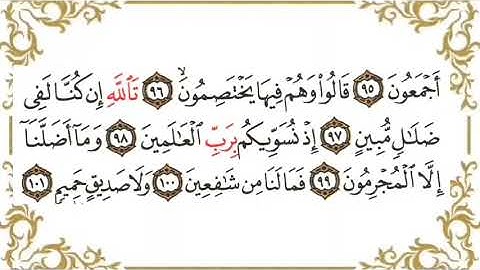 أَجْمَعُونَ ٩٥ قَالُوا۟ وَهُمْ فِيهَا يَخْتَصِمُونَ ۙ ٩٦ تَٱللَّهِ إِن كُنَّا لَفِى
ضَلَٰلٍ مُّبِينٍ ٩٧ إِذْ نُسَوِّيكُم بِرَبِّ ٱلْعَٰلَمِينَ ٩٨ وَمَآ أَضَلَّنَآ
إِلَّا ٱلْمُجْرِمُونَ ٩٩ فَمَا لَنَا مِن شَٰفِعِينَ ١٠٠ وَلَا صَدِيقٍ حَمِيمٍ ١٠١